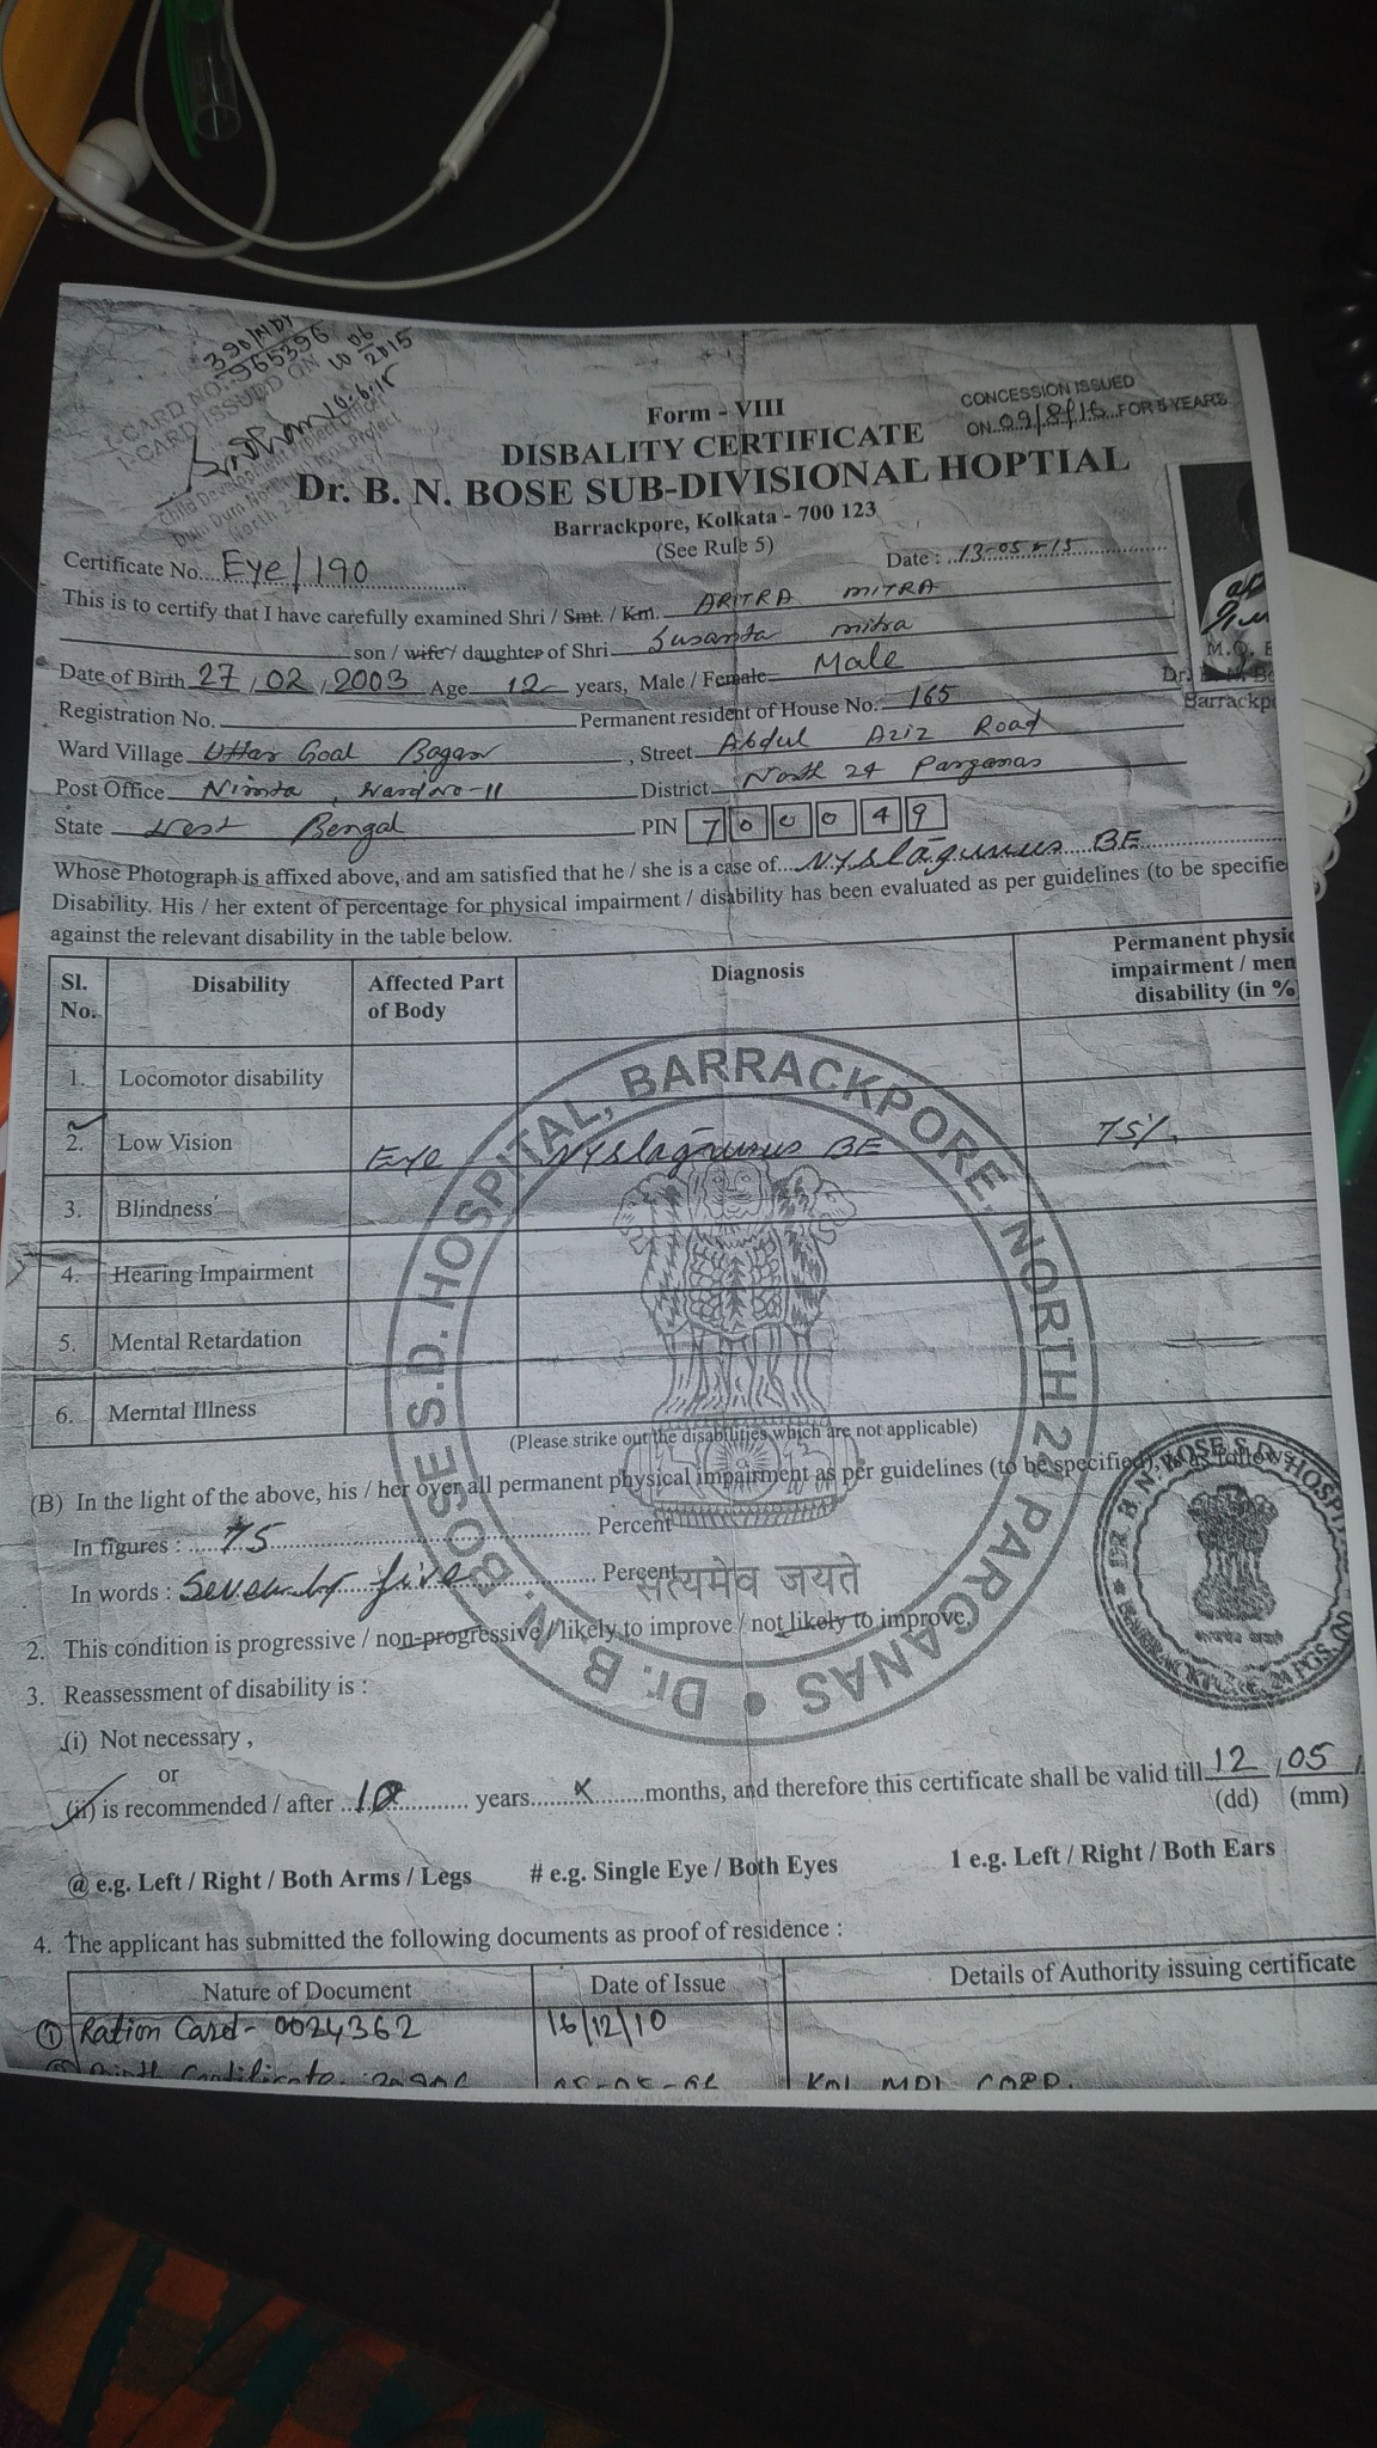 390/NDY
I-CARD NO. 965396
I-CARD ISSUED ON 10 06 2015
10.6.15
Child Development Project Officer
Dum Dum Project
North 2
CONCESSION ISSUED
ON 09/8/16 FOR 5 YEARS
Form - VIII
DISBALITY CERTIFICATE
Dr. B. N. BOSE SUB-DIVISIONAL HOPTIAL
Barrackpore, Kolkata - 700 123
(See Rule 5)
Certificate No.... Eye/190
Date : 13-05-15
This is to certify that I have carefully examined Shri / Smt. / Km. ARITRA MITRA
son / wife / daughter of Shri Susanta mitra
Date of Birth 27/02/2003 Age 12 years, Male / Female Male
M.O.
Dr. B. N. Bo
Barrackp
Registration No. Permanent resident of House No. 165
Ward Village Uttar Goal Bagan, Street Abdul Aziz Road
Post Office Nimta, Ward No-11 District North 24 Parganas
State West Bengal PIN 700049
Whose Photograph is affixed above, and am satisfied that he / she is a case of... Nyslagumus BE
Disability. His / her extent of percentage for physical impairment / disability has been evaluated as per guidelines (to be specifie
against the relevant disability in the table below.
Sl. No. Disability Affected Part of Body Diagnosis Permanent physic impairment / men disability (in %
1. Locomotor disability
2. Low Vision Eye Nyslagmus BE 75%
3. Blindness
4. Hearing Impairment
5. Mental Retardation
6. Merntal Illness
(Please strike out the disabilities which are not applicable)
Dr. B. N. BOSE S.D. HOSPITAL, BARRACKPORE, NORTH 24 PARGANAS
सत्यमेव जयते
(B) In the light of the above, his / her over all permanent physical impairment as per guidelines (to be specified), is as follows
In figures : 75 Percent
In words : Seventy five Percent
DR. B. N. BOSE S.D. HOSPITAL
2. This condition is progressive / non-progressive / likely to improve / not likely to improve.
3. Reassessment of disability is :
(i) Not necessary ,
or
(ii) is recommended / after 10 years x months, and therefore this certificate shall be valid till 12 / 05 /
(dd) (mm)
@ e.g. Left / Right / Both Arms / Legs # e.g. Single Eye / Both Eyes 1 e.g. Left / Right / Both Ears
4. The applicant has submitted the following documents as proof of residence :
Nature of Document Date of Issue Details of Authority issuing certificate
① Ration Card - 0024362 16/12/10
Birth Certificate KOL MPL CORP.